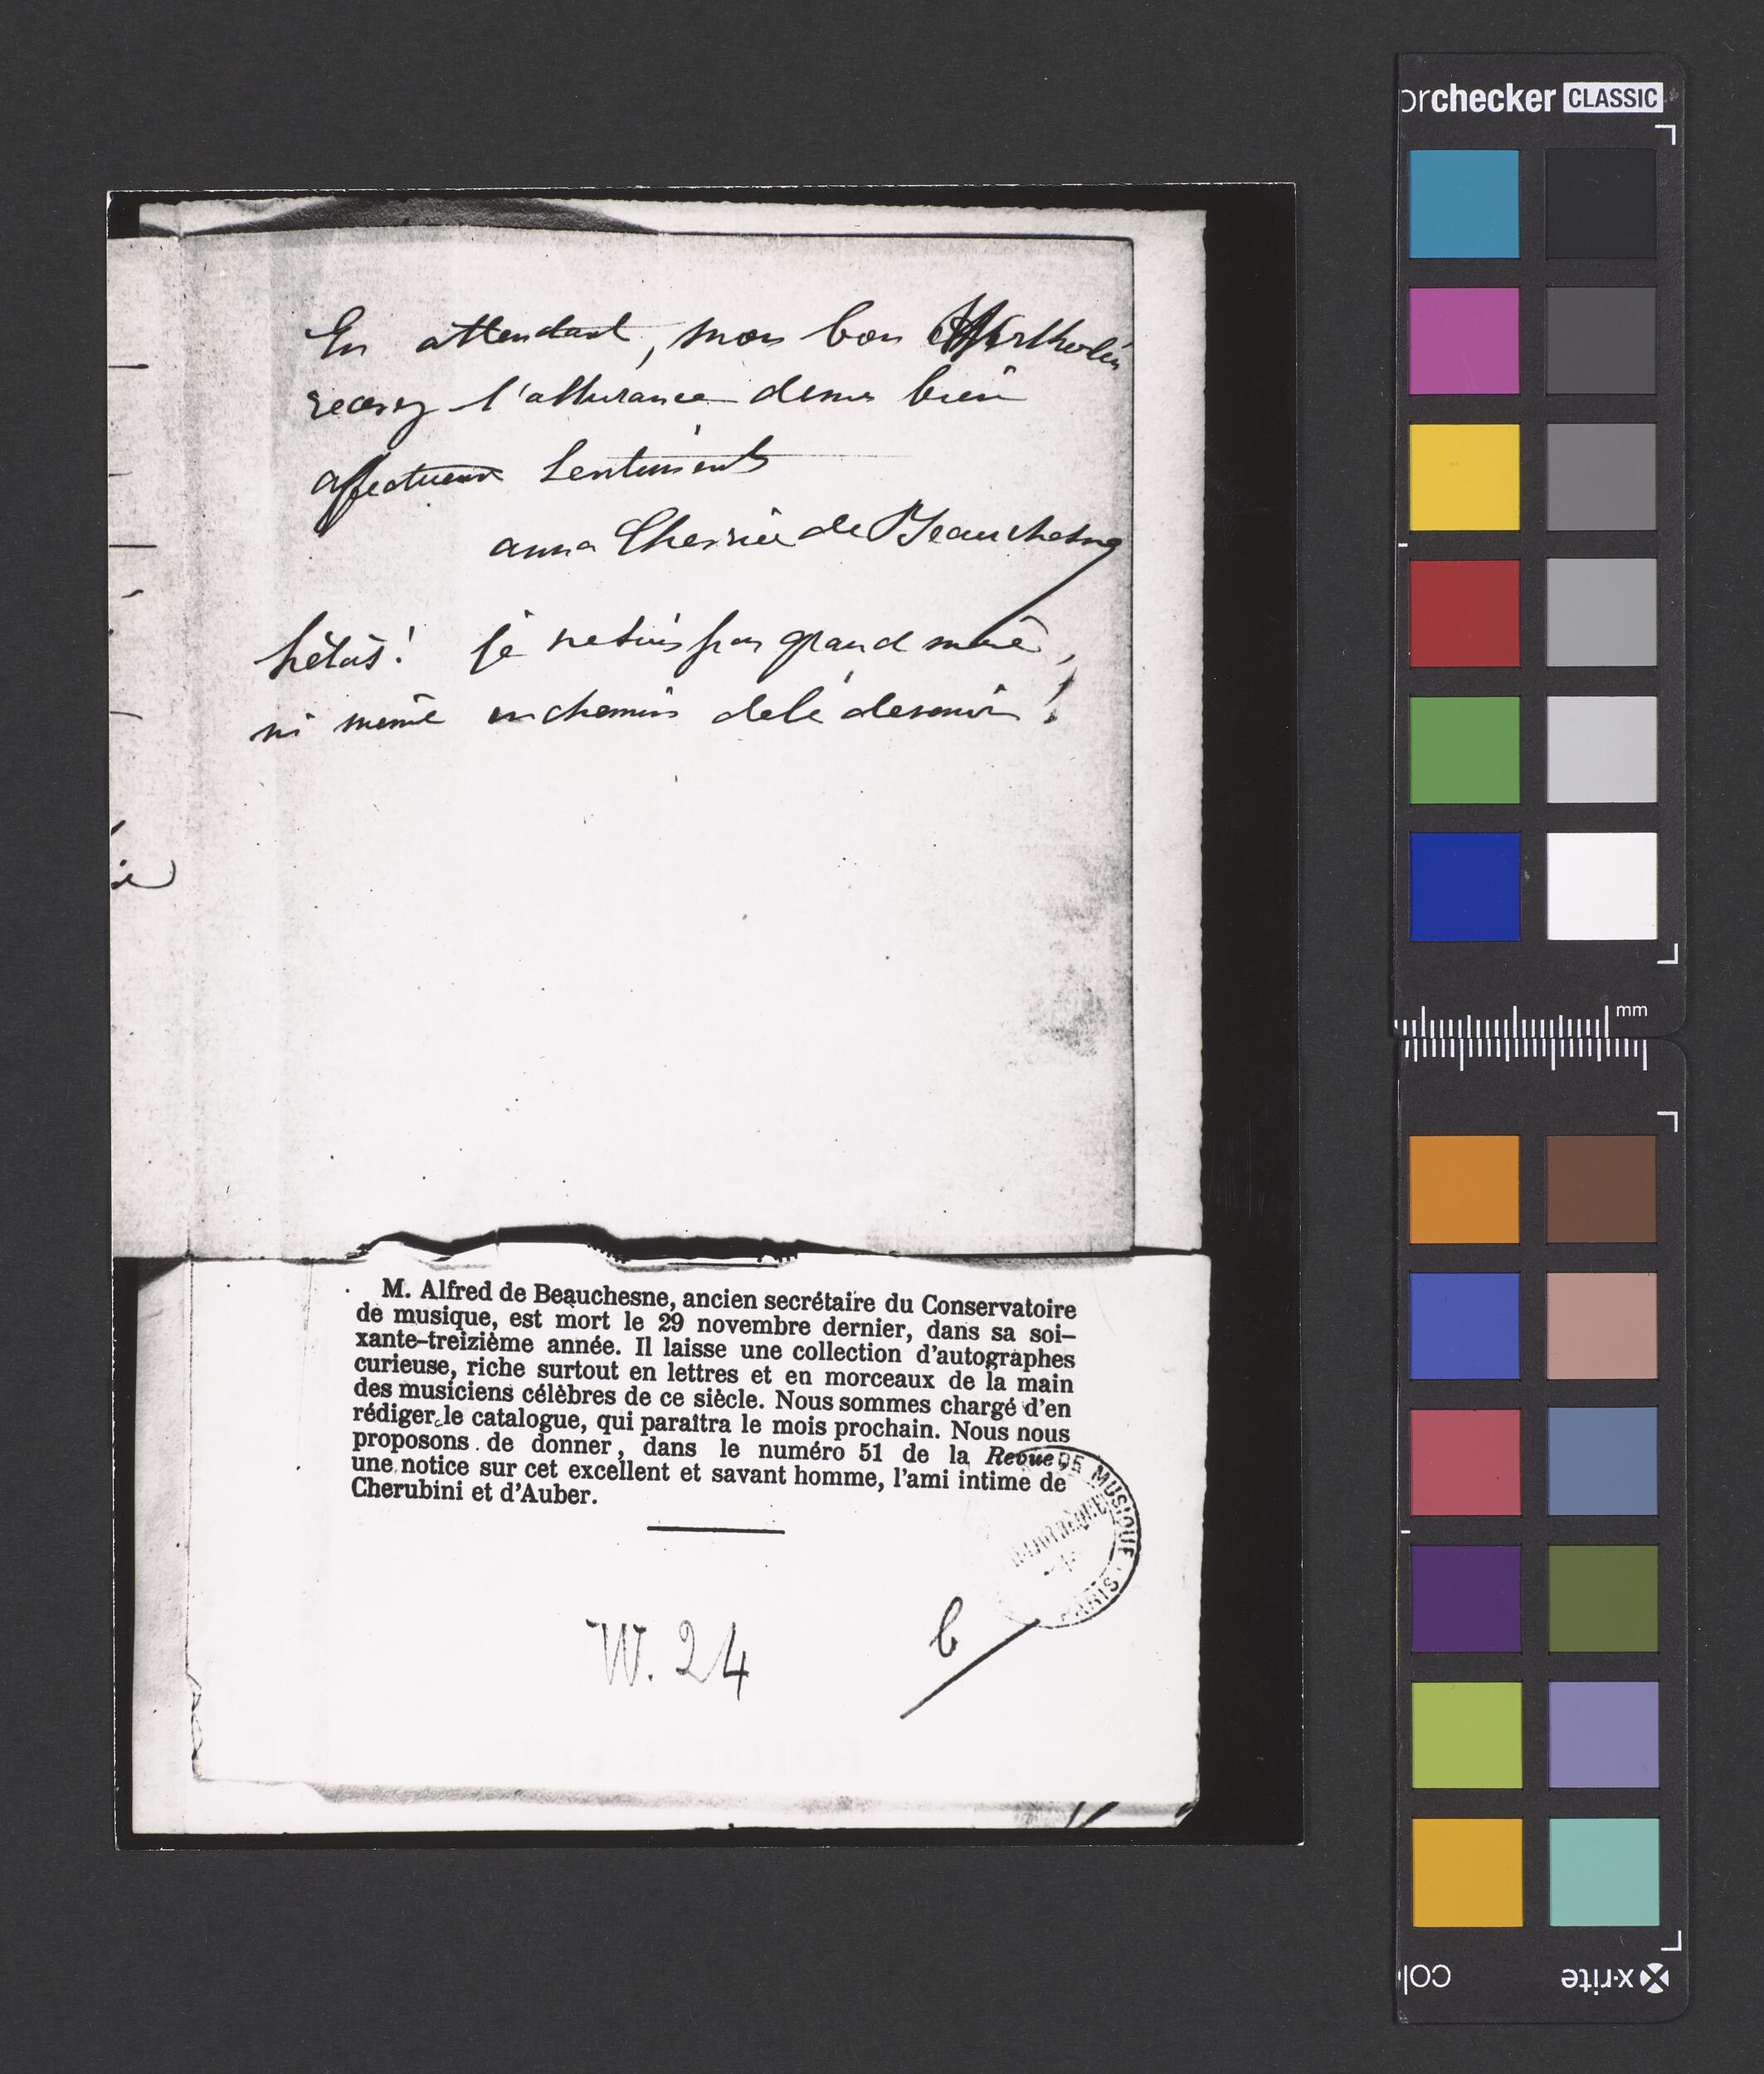 En attendant, mon bon Wertheim
recevez l'assurance de mes bien
affectueux sentiments
anna Chesnié de Beauchesne
hélas! je ne suis pas grand mère,
ni même en chemin de le devenir!
M. Alfred de Beauchesne, ancien secrétaire du Conservatoire
de musique, est mort le 29 novembre dernier, dans sa soi–
xante–treizième année. Il laisse une collection d'autographes
curieuse, riche surtout en lettres et en morceaux de la main
des musiciens célèbres de ce siècle. Nous sommes chargé d'en
rédiger le catalogue, qui paraîtra le mois prochain. Nous nous
proposons de donner, dans le numéro 51 de la Revue,
une notice sur cet excellent et savant homme, l'ami intime de
Cherubini et d'Auber.
DE MUSIQUE · PARIS
BIBLIOTHÈQUE
W. 24
b
orchecker CLASSIC
mm
x·rite
col